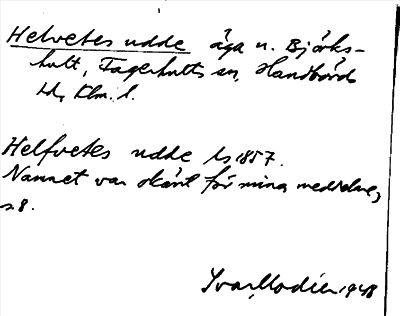 Helvetes udde äga u. Björks-
hult, Fagerhults sn, Handbörds
hd, Klm. l.
Helfvetes udde Ls 1857.
Namnet var okänt för mina meddelare,
s 8.
Ivar Modéer 1948